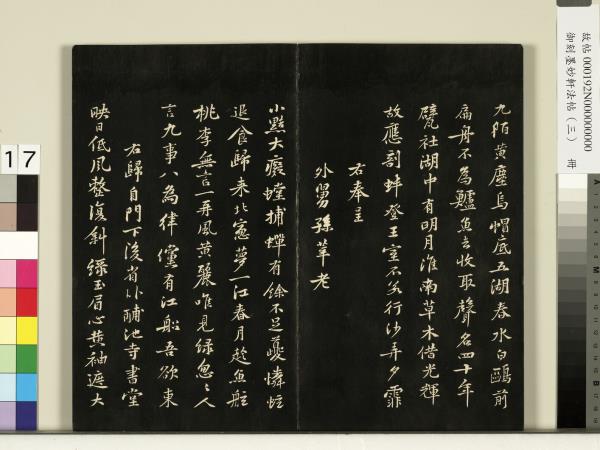 故帖 000192N000000000 冊
御刻墨妙軒法帖（三）
九陌黃塵烏帽底五湖春水白鷗前
扁舟不為鱸魚去收取聲名四十年
甓社湖中有明月淮南草木借光輝
故應剖蚌登王室不若行沙弄夕霏
右奉呈
外舅孫莘老
小黠大癡螳捕蟬有餘不足夔憐蚿
退食歸来北窓夢一江春月趂魚舡
桃李無言一再風黃麗唯見綠怱〻人
言九事八為律儻有江船吾欲東
右歸自門下後省卧酺池寺書堂
映日低風整復斜綠玉眉心黃袖遮大
17